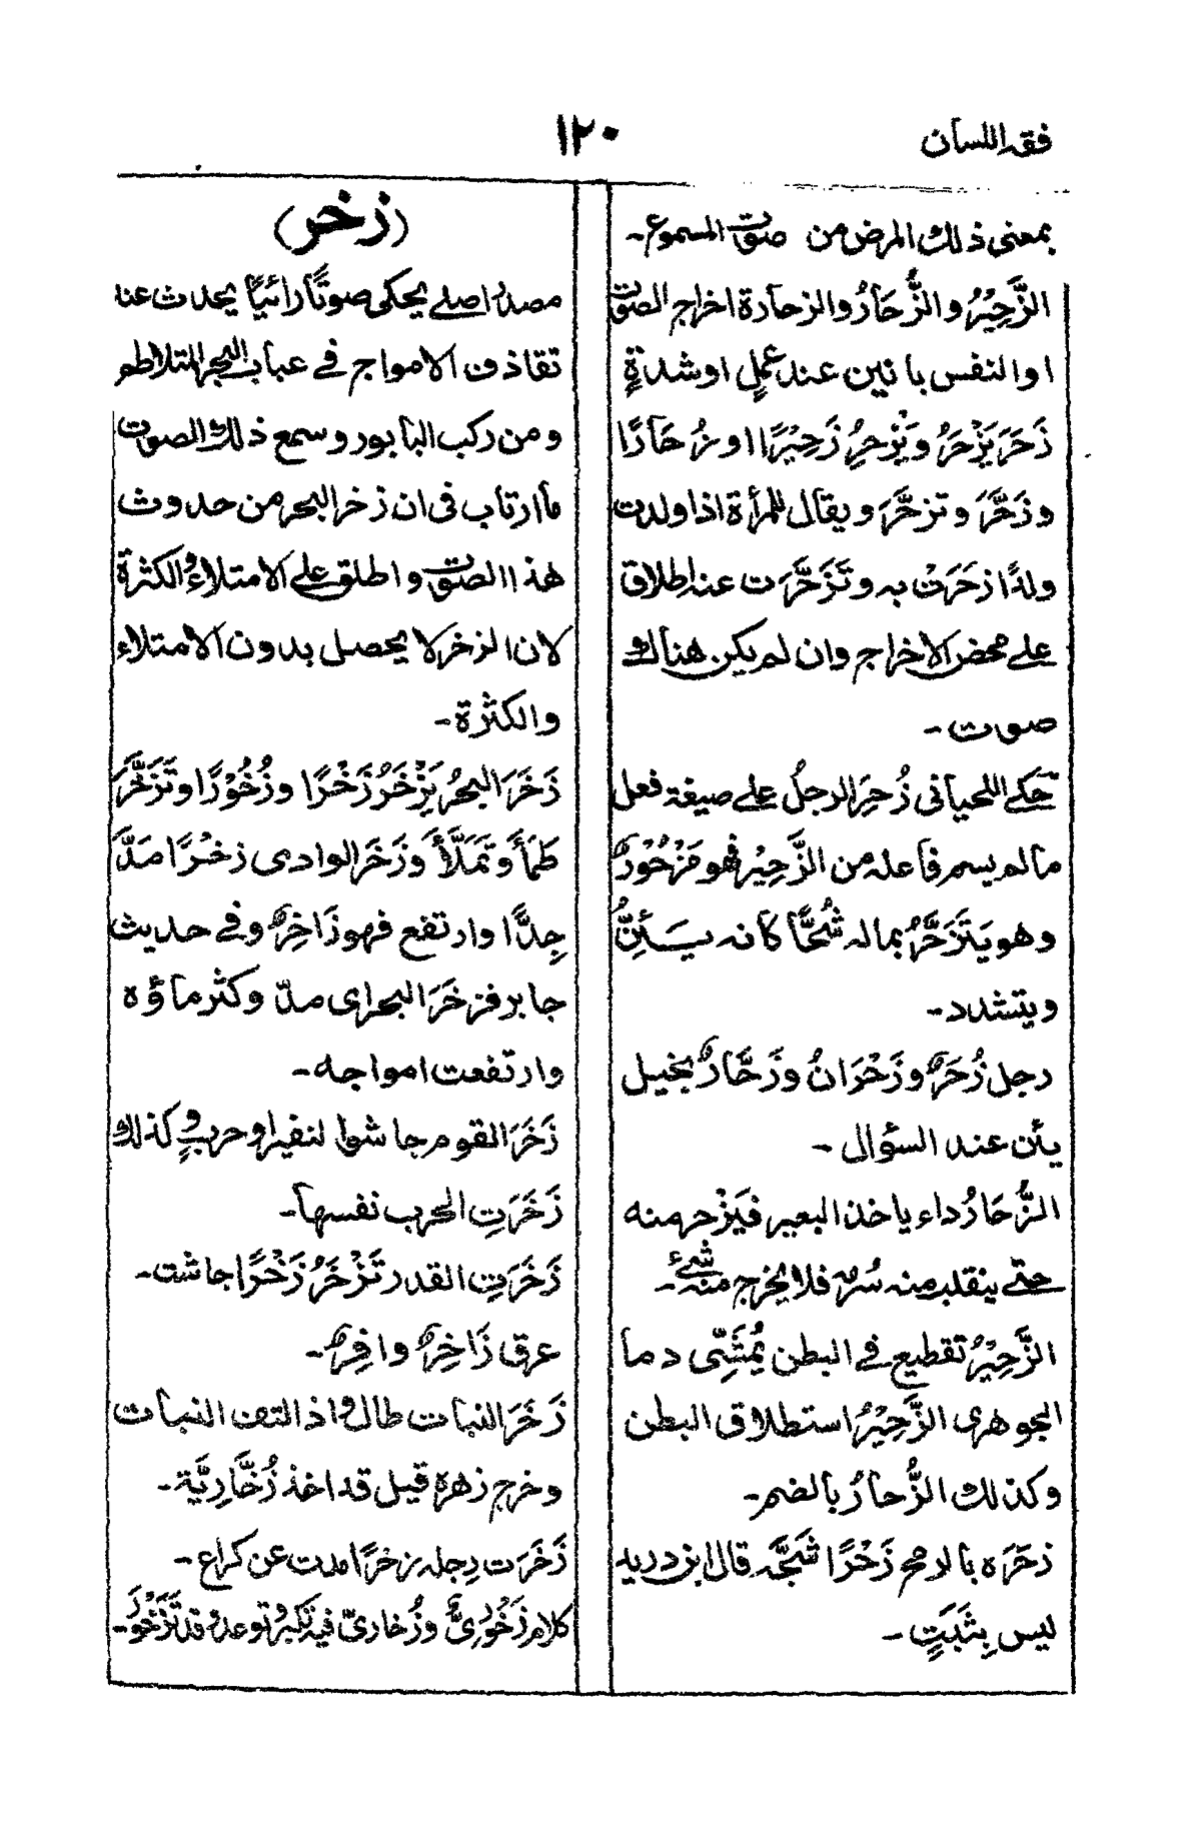 فقه اللسان
١٢٠
بمعنى ذلك المرض من صوت المسموع ـ
الزَّحِيْرُ والزُّحَارُ والزحارة اخراج الصوت
او النفس بانين عند عملٍ او شدةٍ
زَحَرَ يَزْحَرُ وَيَزْحِرُ زَحِيْرًا او زُحَارًا
وزَحَّرَ وتزحَّرَ ويقال للمرأة اذا ولدت
ولدًا زحَرَتْ به وتَزَحَّرَت عنه اطلاق
على محض الاخراج وان لم يكن هنالك
صوت ـ
حكى اللحيانى زُحِرَ الرجلُ على صيغة فعل
مالم يسم فاعله من الزَّحِيْرِ فهو مَزْحُوْرٌ
وهو يَتَزَحَّرُ بماله شُحًّا كانه يَئِنُّ
ويتشدد ـ
رجل زُحَرٌ وزَحْرَانُ وزَحَّارٌ بخيل
يئن عند السؤال ـ
الزُّحَارُ داء ياخذ البعير فيَزْحر منه
حتى ينقلب منه سُرمه فلا يخرج منه شئ ـ
الزَّحِيْرُ تقطيع فى البطن يُمَشِّى دما
الجوهرى الزَّحِيْرُ استطلاق البطن
وكذلك الزُّحارُ بالضم ـ
زحَرَه بالرمح زَحْرًا شَجَّه قال ابن دريد
ليس بِثَبَتٍ ـ
(زخر)
مصدر اصلى يحكى صوتًا رائيًا يحدث عند
تقاذف الامواج فى عباب البحر المتلاطم
ومن ركب البابور وسمع ذلك الصوت
ما ارتاب فى ان زخر البحر من حدوث
هذا الصوت واطلق على الامتلاء والكثرة
لان الزخر لا يحصل بدون الامتلاء
والكثرة ـ
زَخَرَ البحرُ يَزْخَرُ زَخْرًا وزُخُوْرًا وتَزَخَّرَ
طَمَأَ وتَمَلَّأَ وزَخَرَ الوادى زخْرًا مَدَّ
جِدًّا وارتفع فهو زَاخِرٌ وفى حديث
جابر فزخَرَ البحر اى مدّ وكثر ماؤه
وارتفعت امواجه ـ
زَخَرَ القوم جاشوا لنفير او حربٍ وكذلك
زَخَرَتِ الحرب نفسها ـ
زَخَرَتِ القدر تَزْخَرُ زَخْرًا جاشت ـ
عرق زَاخِرٌ وافِرٌ ـ
زَخَرَ النبات طال واذا التف النبات
وخرج زهره قيل قد اخذ زُخَّارِيَّة ـ
زَخَرَت رجله زخرًا مدت عن كراع ـ
كلام زَخْوَرِىٌّ وزُخارىّ فيه تكبّر وتوعد وقد تَزَخْوَرَ ـ